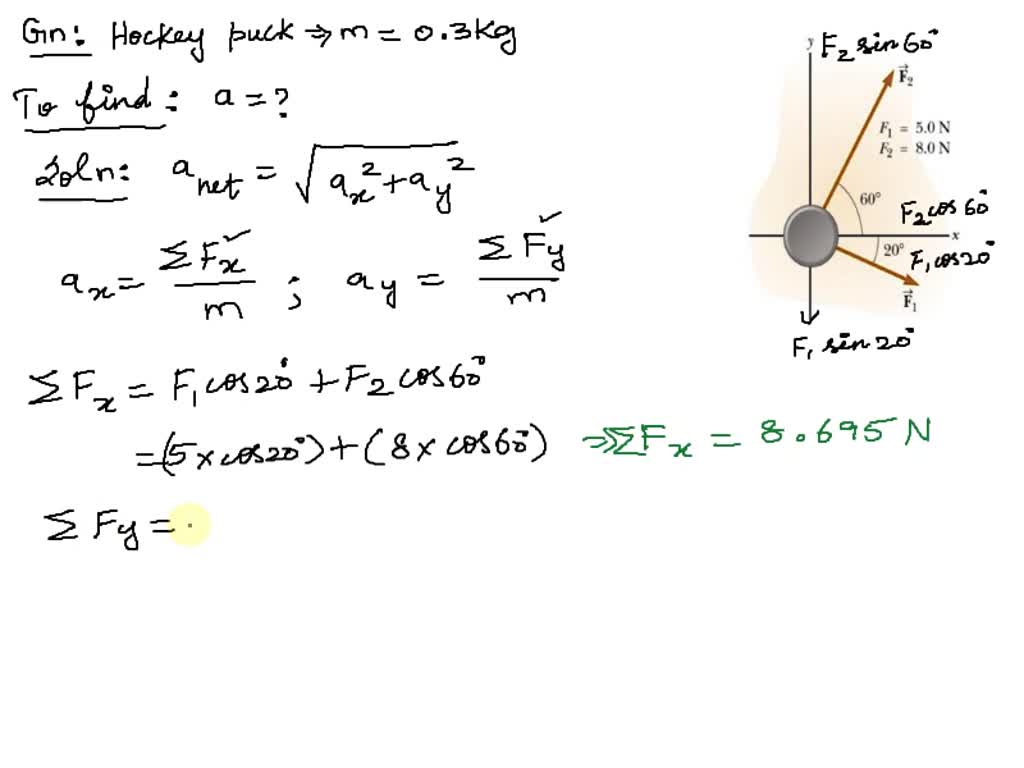 Gn: Hockey puck ⇒ m = 0.3kg
To find: a = ?
Soln: a net = √(ax² + ay²)
ax = ΣFx / m ; ay = ΣFy / m
ΣFx = F1 cos20° + F2 cos60°
= (5 x cos20°) + (8 x cos60°) ⇒ ΣFx = 8.695 N
ΣFy =
y F2 sin60°
F2
F1 = 5.0 N
F2 = 8.0 N
60°
F2 cos60°
x
20° F1 cos20°
F1
F1 sin20°